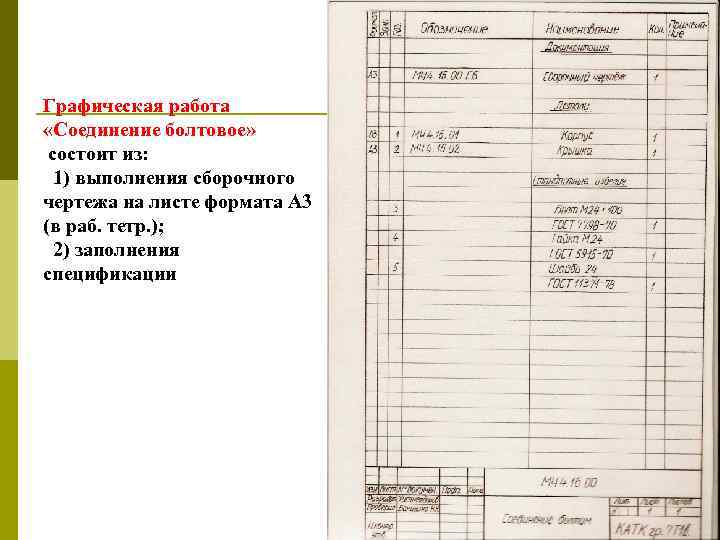 Графическая работа
«Соединение болтовое»
состоит из:
1) выполнения сборочного
чертежа на листе формата А3
(в раб. тетр.);
2) заполнения
спецификации
Формат Зона Поз. Обозначение Наименование Кол. Примеча-
ние
Документация
А3 МЧ4.16.00 СБ Сборочный чертёж 1
Детали
А3 1 МЧ4.16.01 Корпус 1
А3 2 МЧ4.16.02 Крышка 1
Стандартные изделия
3 Болт М24×100
ГОСТ 7798-70 1
4 Гайка М24
ГОСТ 5915-70 1
5 Шайба 24
ГОСТ 11371-78 1
МЧ4.16.00
Изм Лист № докумен. Подп. Дата
Разработ.
Проверил
Н.контр.
Утв.
Соединение болтом
Лит. Лист Листов
1
КАТК гр. 7Т1в.